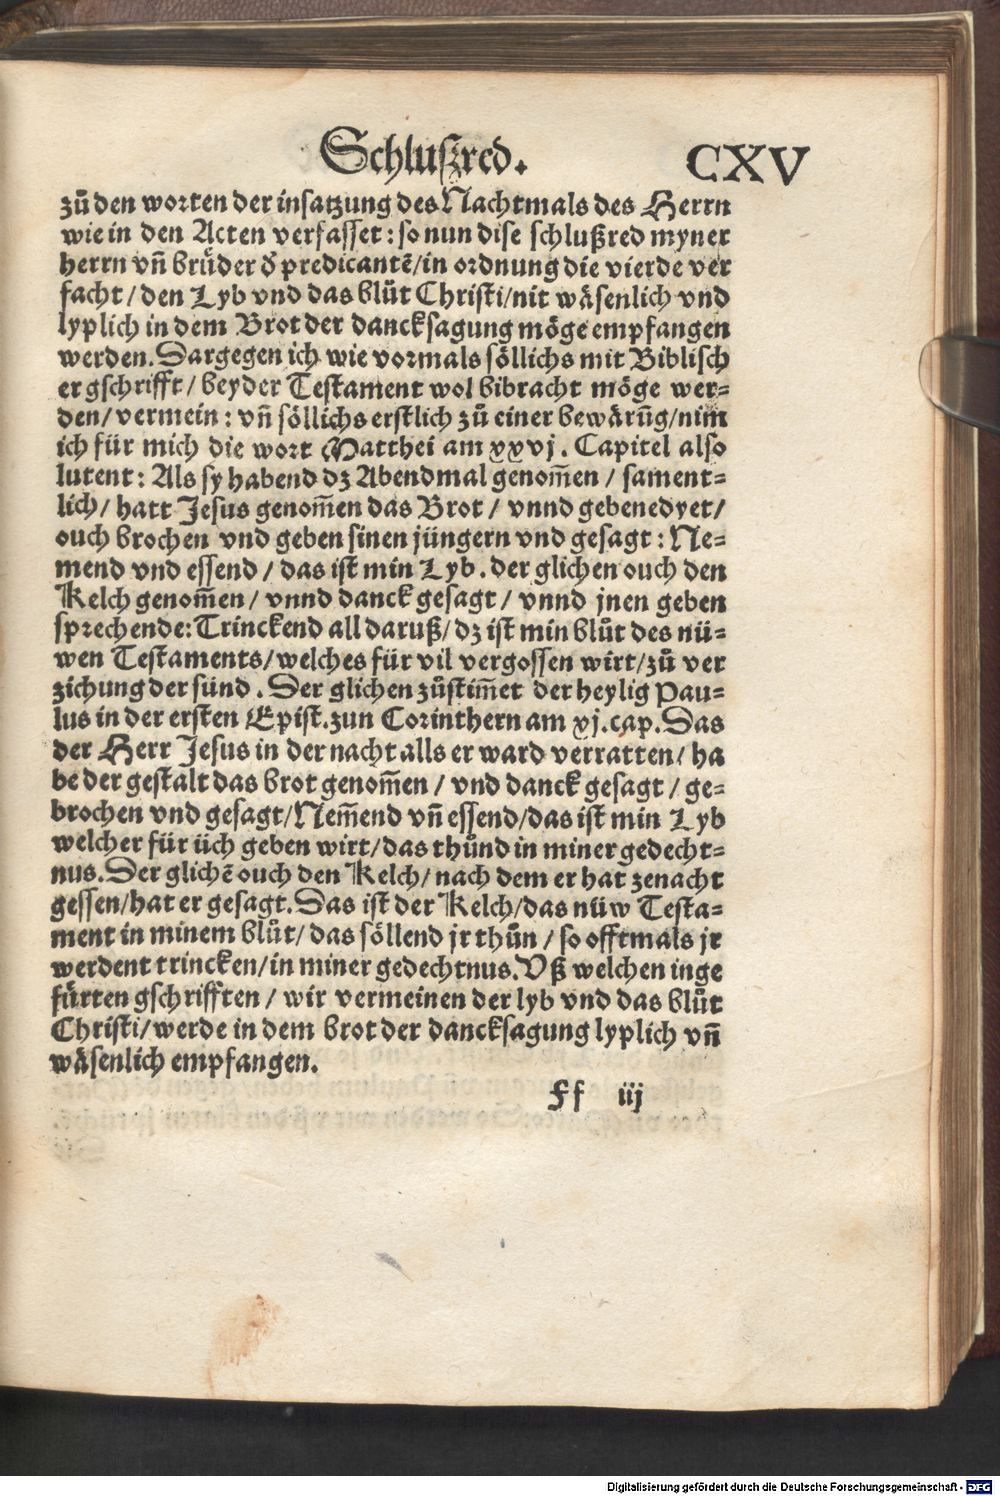 Schlußred. CXV
zů den worten der insatzung des Nachtmals des Herrn
wie in den Acten verfasset: so nun dise schlußred myner
herrn vn̄ brüder d̕ predicantē/in ordnung die vierde ver
facht/den Lyb vnd das blůt Christi/nit wäsenlich vnd
lyplich in dem Brot der dancksagung möge empfangen
werden. Dargegen ich wie vormals söllichs mit Biblisch
er gschrifft/beyder Testament wol bibracht möge wer-
den/vermein: vn̄ söllichs erstlich zů einer bewärūg/nim̄
ich für mich die wort Matthei am xxvj. Capitel also
lutent: Als sy habend dz Abendmal genom̄en/sament-
lich/hatt Jesus genom̄en das Brot/vnnd gebenedyet/
ouch brochen vnd geben sinen jüngern vnd gesagt: Ne-
mend vnd essend/das ist min Lyb. der glichen ouch den
Kelch genom̄en/vnnd danck gesagt/vnnd jnen geben
sprechende: Trinckend all daruß/dz ist min blůt des nü-
wen Testaments/welches für vil vergossen wirt/zů ver
zichung der sünd. Der glichen zůstim̄et der heylig Pau-
lus in der ersten Epist. zun Corinthern am xj. cap. Das
der Herr Jesus in der nacht alls er ward verratten/ha
be der gestalt das brot genom̄en/vnd danck gesagt/ge-
brochen vnd gesagt/Nem̄end vn̄ essend/das ist min Lyb
welcher für üch geben wirt/das thůnd in miner gedecht-
nus. Der glichē ouch den Kelch/nach dem er hat zenacht
gessen/hat er gesagt. Das ist der Kelch/das nüw Testa-
ment in minem blůt/das söllend jr thůn/so offtmals jr
werdent trincken/in miner gedechtnus. Vß welchen inge
fürten gschrifften/wir vermeinen der lyb vnd das blůt
Christi/werde in dem brot der dancksagung lyplich vn̄
wäsenlich empfangen.
Ff iij
Digitalisierung gefördert durch die Deutsche Forschungsgemeinschaft - DFG